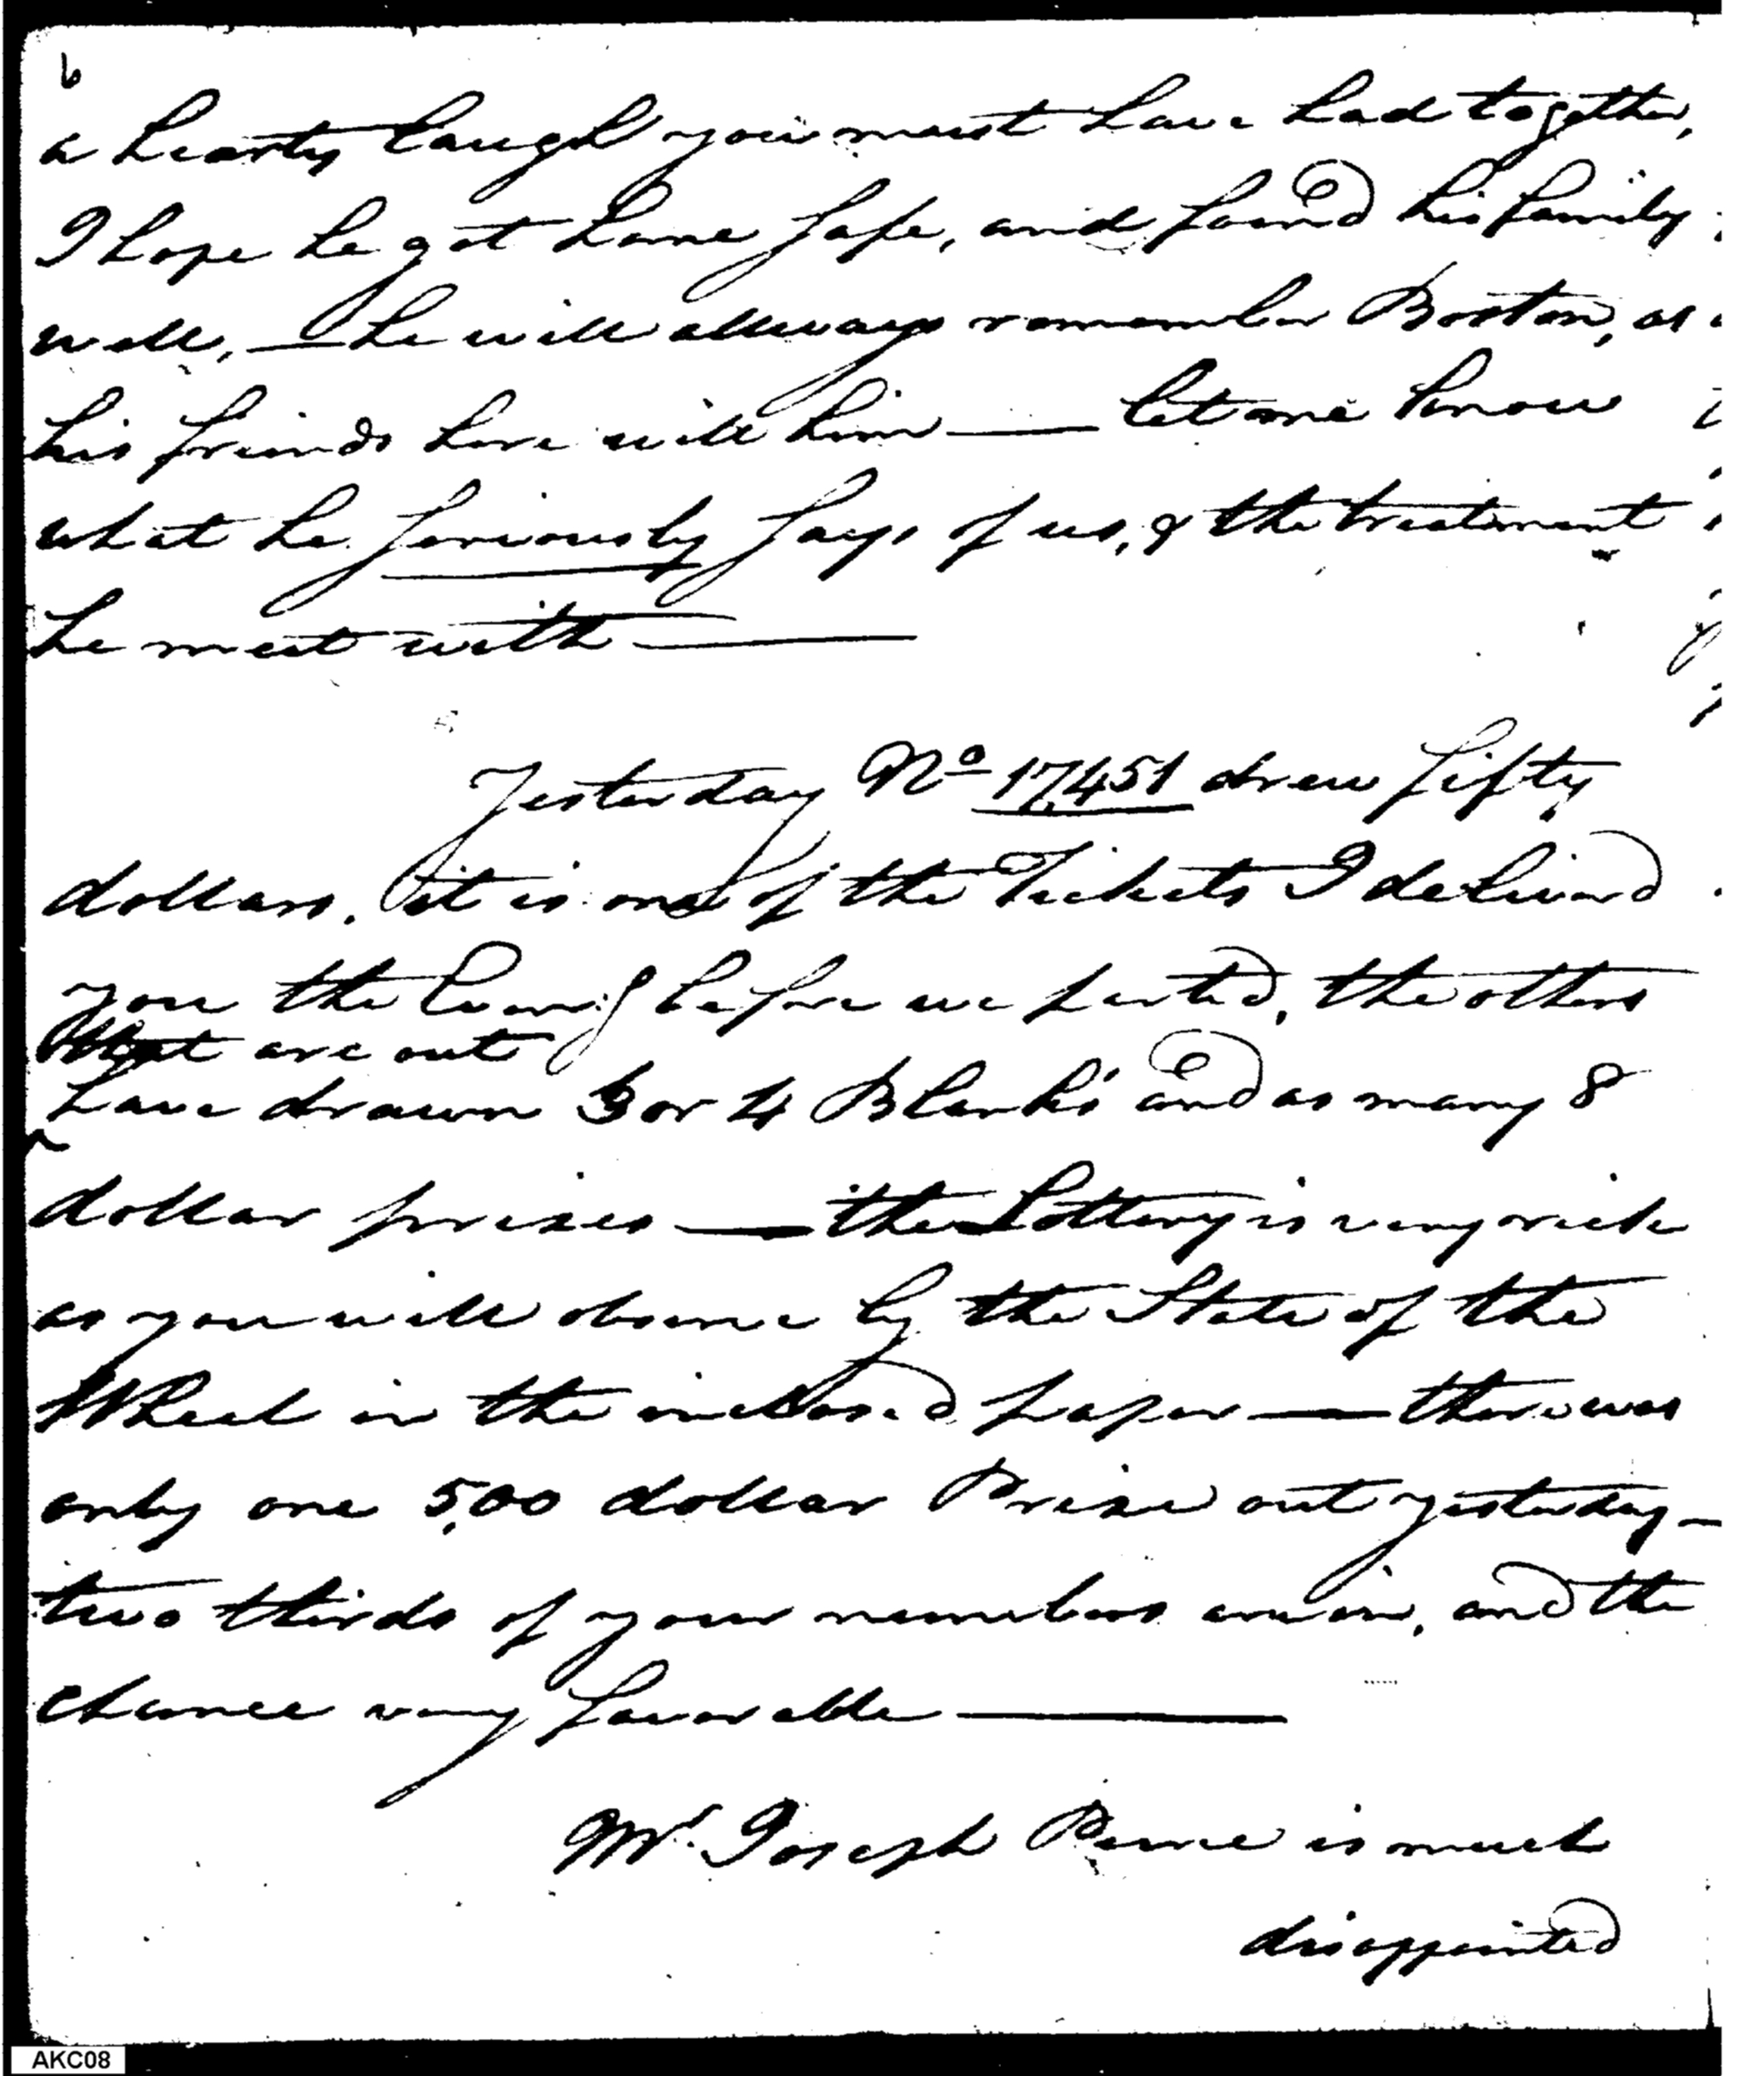 6
a hearty laugh you must have had together,
I hope he got home safe, and found his family
well, — he will allways remember Boston, as
his friends here will him — let me know
what he seriously says of us, & the treatment
he met with —
Yesterday No 17,451 drew fifty
dollars. it is one of the Tickets I deliverd
you the Eveng before we parted, the others
that are out
have drawn 3 or 4 Blanks and as many 8
dollar prises — the Lottery is very rich
as you will observe by the State of the
Wheel in the inclosed paper — there was
only one 5,00 dollar Prise out yesterday —
two thirds of your numbers are in, and the
chance very favorable —
Mr. Joseph Peirce is much
disappointed
AKC08